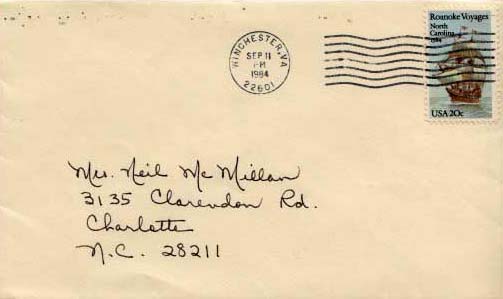 WINCHESTER, VA
SEP 11
PM
1984
22601
Roanoke Voyages
North
Carolina
1584
USA 20c
Mrs. Neil McMillan
3135 Clarendon Rd.
Charlotte
N.C. 28211